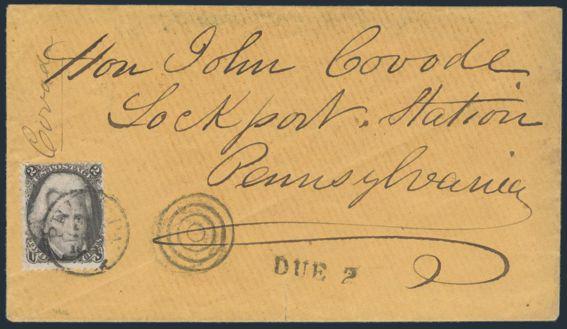 Hon John Covode
Lockport, Station
Pennsylvania
Covode
U.S. POSTAGE
DUE 2